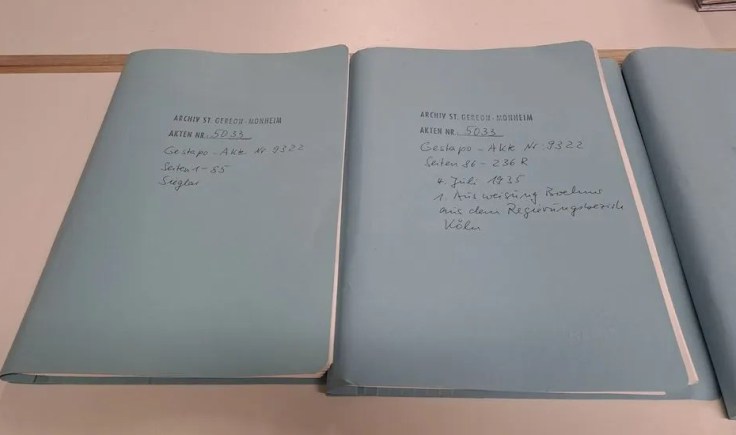 ARCHIV ST. GEREON - MONHEIM
AKTEN NR. 5033
Gestapo - Akte Nr. 9322
Seiten 1 - 85
Sieglar
ARCHIV ST. GEREON - MONHEIM
AKTEN NR. 5033
Gestapo - Akte Nr. 9322
Seiten 86 - 236 R
4. Juli 1935
1. Ausweisung Boehmer
aus dem Regierungsbezirk
Köln